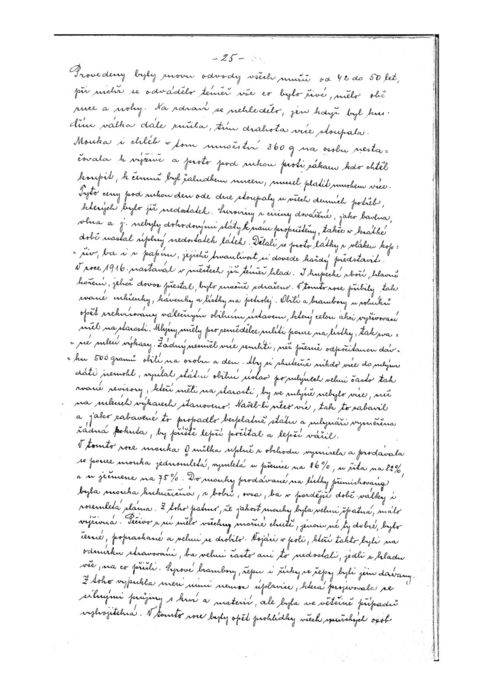 - 25 -
Provedeny byly znovu odvody všech mužů od 42 do 50 let,
při nichž se odvádělo téměř vše co bylo živé, mělo obě
ruce a nohy. Na zdraví se nehledělo, jen když byl kus.
Čím válka dále zuřila, tím drahota více stoupala.
Mouka i chléb v tom množství 360 g na osobu nesta-
čovala k výživě a proto pod rukou proti zákazu kdo chtěl
koupit, k čemuž byl žaludkem nucen, musel platit mnohem více.
Tyto ceny pod rukou den ode dne stoupaly u všech denních potřeb,
kterých bylo již nedostatek. Suroviny z ciziny dovážené, jako bavlna,
vlna a j. nebyly dohodovými státy k nám propuštěny, takže v krátké
době nastal úplný nedostatek látek. Dělali se proto látky z vláken kop-
řiv, ba i z papíru, jejichž trvanlivost si dovede každý představit.
V roce 1916 nastával v městech již téměř hlad. I kupecké zboží, hlavně
koření, jehož dovoz přestal, bylo značně zdraženo. V tomto roce přibyly tak
zvané cukřenky, kávenky a lístky na petrolej. Obilí a brambory u rolníků
opět rekvírovány válečným obilním ústavem, který celou akci vyživovací
měl na starosti. Mlýny směly pro zemědělce mlíti pouze na lístky, tak zva-
né mlecí výkazy. Žádný nesměl více semlíti, než přesně odpočítanou dáv-
ku 500 gramů obilí na osobu a den. Aby si skutečně nikdo více do mlýna
dáti nemohl, vysílal státní obilní ústav po mlýnech velmi často tak
zvané revisory, kteří měli na starosti, by ve mlýně nebylo více, než
na mlecích výkazech stanoveno. Našel-li něco víc, tak to zabavil
a jako zabavené to propadlo bezplatně státu a mlynáři vyměřena
řádná pokuta, by příště lépe počítal a lépe vážil.
V tomto roce mouka 0 nulka úplně z obchodu vymizela a prodávala
se pouze mouka jednomletá, vymletá u pšenice na 86%, u žita na 82%,
a u ječmene na 75%. Do mouky prodávané na lístky přimíchávána
byla mouka kukuřičná, z bobů, ovsa, ba v pozdější době války i
rozemletá sláma. Z toho patrno, že jakost mouky byla velmi špatná, málo
výživná. Pečivo z ní mělo všechny možné chuti, jenom ne ty dobré, bylo
černé, popraskané a velmi se drobilo. Vojáci v poli, kteří takto byli na
odmínku stravování, ba velmi často ani to nedostali, jedli z hladu
vše, na co přišli. Syrové brambory, řepu i řízky z řepy byli jim dávány.
Z toho vypukla mezi nimi nemoc úplavice, která projevovala se
silnými průjmy s krví a materií, ale byla ve většině případů
vyhojitelná. V tomto roce byly opět prohlídky všech mužských osob